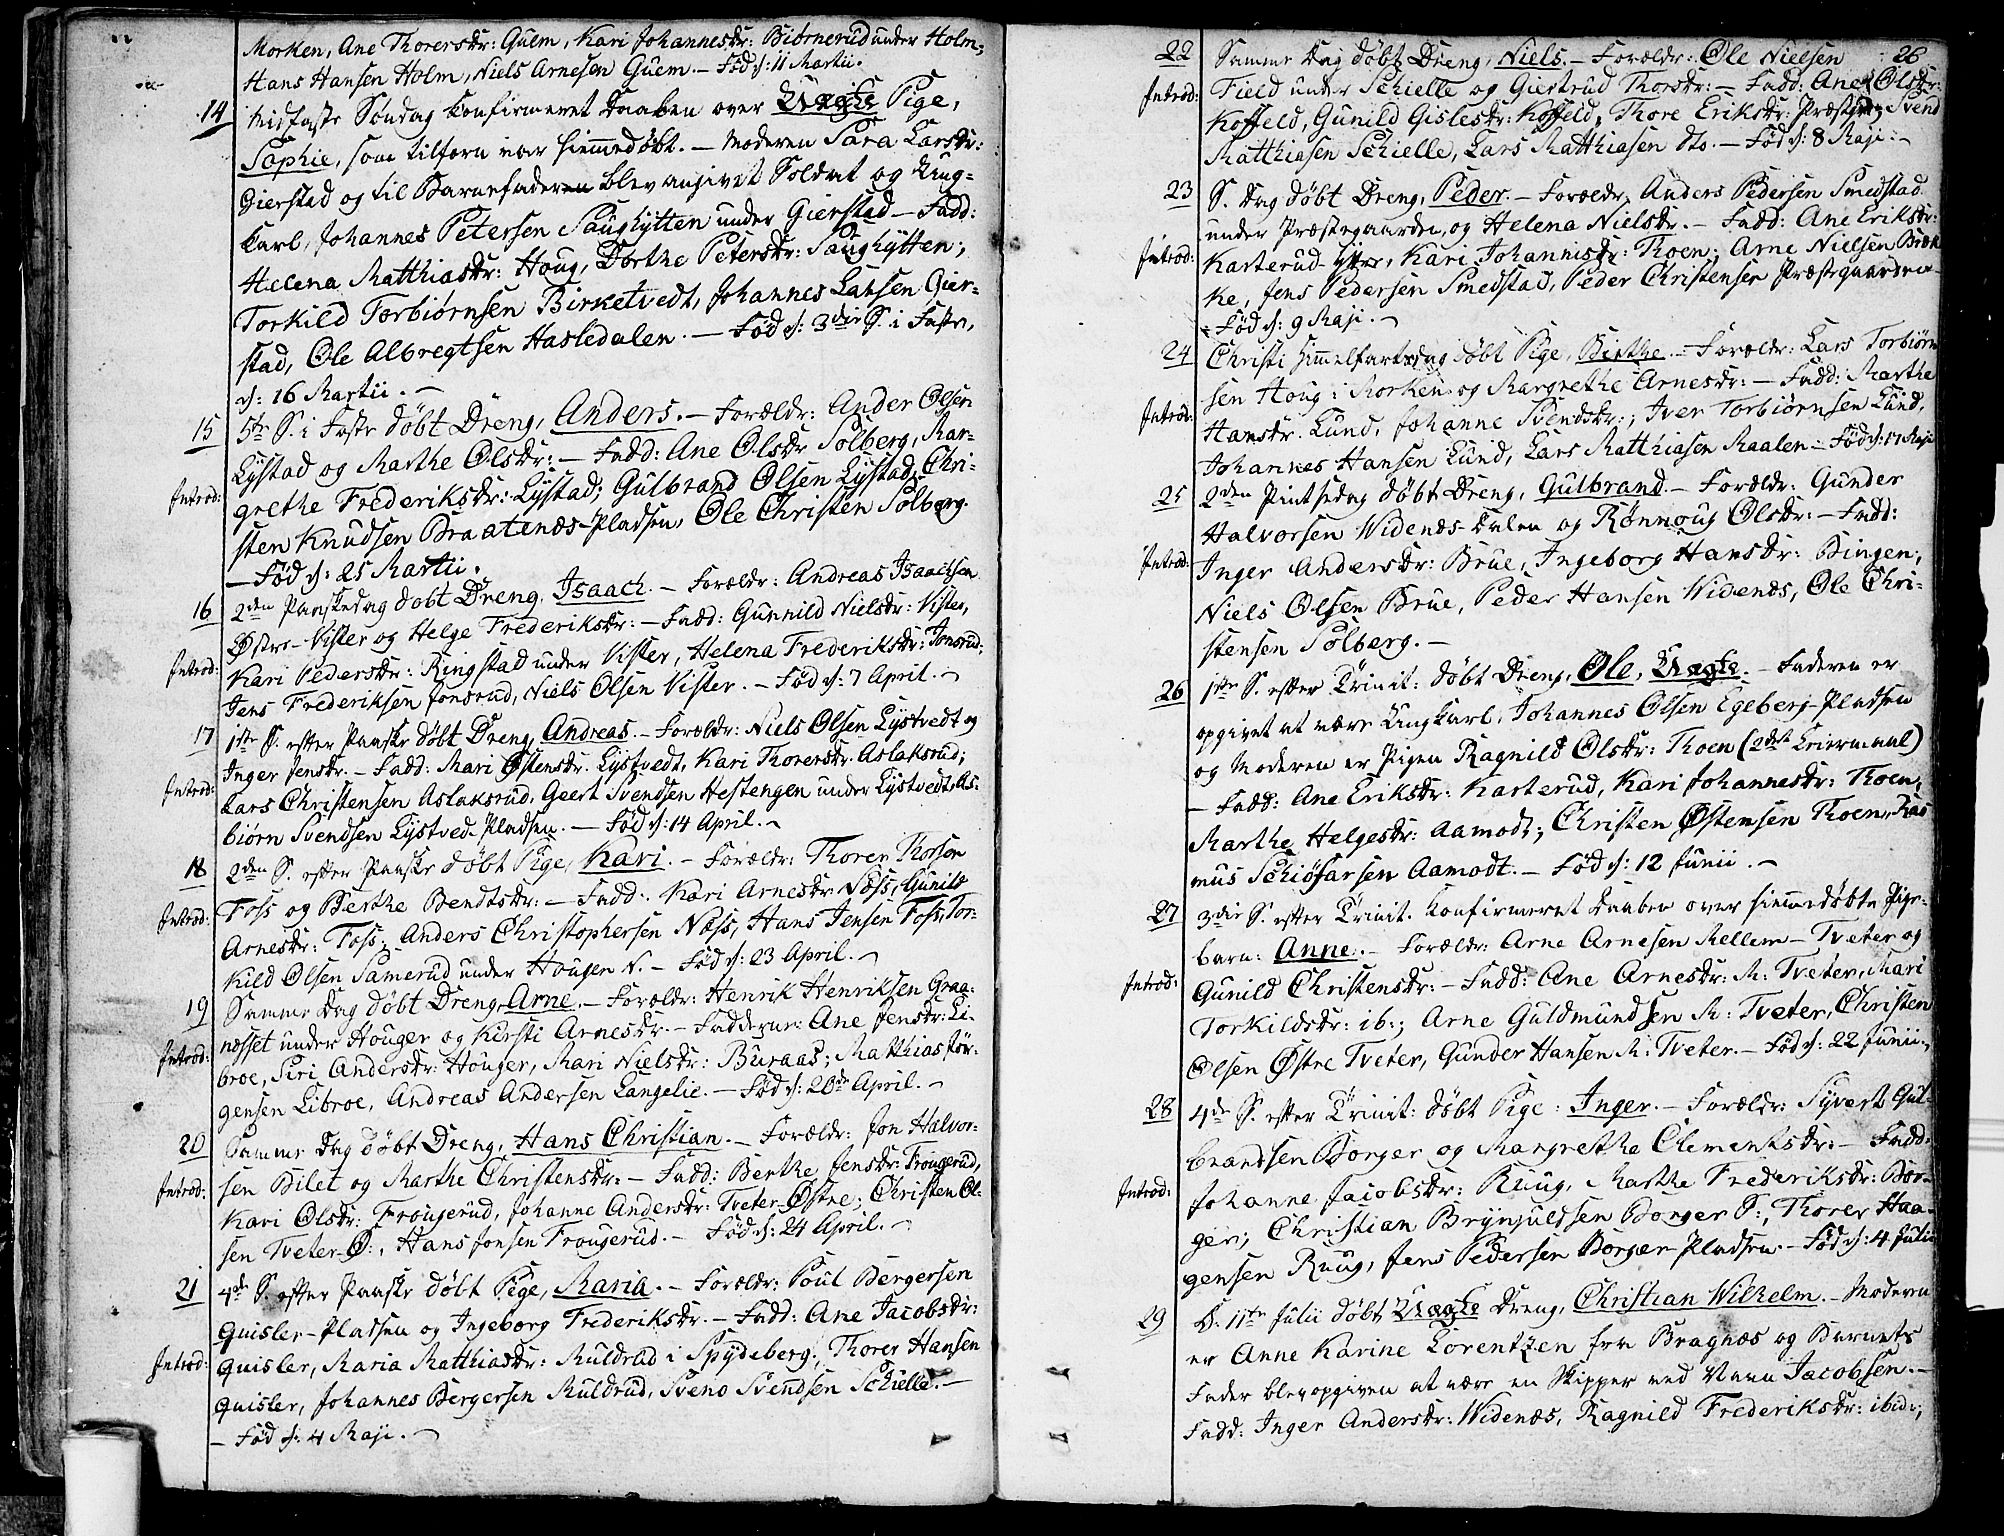 Morken, Ane Thorersdr: Guem, Kari Johannesdr: Biørnerud under Holm;
Hans Hansen Holm, Niels Arnesen Guem. – Fød d: 11 Martii.
14 Midfaste Søndag Confirmeret Daaben over Uægte Pige,
Sophie, som tilforn var hiemmedøbt. – Moderen Sara Larsdr:
Gierstad og til Barnefader blev angivet Soldat og Ung-
karl, Johannes Petersen Saughytten under Gierstad – Fadd:
Helena Matthiasdr: Houg, Dorthe Petersdr: Saughÿtten;
Torkild Torbiørnsen Birketvedt, Johannes Larsen Gier-
stad, Ole Albregtsen Hasledalen. – Fød d: 3die S. i Faste,
d: 16 Martii. –
15 5te S. i Faste døbt Dreng, Anders. – Forældr: Ander Olsen
Lÿstad og Marthe Olsdr: – Fadd: Ane Olsdr Solberg, Mar-
Introd: grethe Frederiksdr: Lÿstad; Gulbrand Olsen Lÿstad, Chri-
sten Knudsen Braatenæs-Pladsen, Ole Christen Solberg.
– Fød d: 25 Martii.
16 2den Paaskedag døbt Dreng, Isaach. – Forældr: Andreas Isaachsen
Østre-Vister og Helge Frederiksdr: – Fadd: Gunnild Nielsdr: Vister,
Introd: Kari Pedersdr: Ringstad under Vister, Helena Frederiksdr: Jonsrud;
Jens Frederiksen Jonsrud, Niels Olsen Vister. – Fød d: 7 April. –
17 1ste S. efter Paaske døbt Dreng, Andreas. – Forældr: Niels Olsen Lÿstvedt og
Inger Jensdr. – Fadd: Mari Østensdr. Lÿstvedt, Kari Thorersdr. Aslaksrud;
Introd: Lars Christensen Aslaksrud, Geert Svendsen Hestengen under Lÿstvedt, As-
biørn Svendsen Lÿstved-Pladsen. – Fød d: 14 April. –
18 2den S. efter Paaske døbt Pige, Kari. – Forældr: Thorer Thorsen
Foss og Berthe Bendtsdr: – Fadd: Kari Arnesdr Næss, Gunild
Introd: Arnesdr: Foss; Anders Christophersen Næss, Hans Jensen Foss, Tor-
kild Olsen Samerud under Hougen N. – Fød d: 23 April. –
19 Samme Dag døbt Dreng, Arne. – Forældr: Henrik Henriksen Graa-
næsset under Houger og Kirsti Arnesdr. – Fadderne: Ane Jensdr: Li-
Introd: broe, Siri Andersdr: Houger, Mari Nielsdr: Buraas; Matthias Jør-
gensen Libroe, Andreas Andersen Langelie. – Fød d: 20de April. –
20 Samme Dag døbt Dreng, Hans Christian. – Forældr: Jon Halvor-
sen Bilet og Marthe Christensdr: – Fadd: Berthe Jensdr: Frougerud,
Introd: Kari Olsdr: Frougerud, Johanne Andersdr: Tveter Østre; Christen Ol-
sen Tveter-Ø:, Hans Jonsen Frougerud. – Fød d: 24 April. –
21 4de S. efter Paaske døbt Pige, Maria. – Forældr: Poul Bergersen
Quisler-Pladsen og Ingeborg Frederiksdr. – Fadd: Ane Jacobsdr:
Introd: Quisler, Maria Matthiasdr: Muldrud i Spÿdeberg; Thorer Hansen
Quisler, Johannes Bergersen Muldrud, Svend Svendsen Schielle. –
– Fød d: 4 Maji. –
26
22 Samme Dag døbt Dreng, Niels. – Forældr: Ole Nielsen
Introd: Field under Schielle og Giertrud Thorsdr: – Fadd: Ane Olsdr:
Koffeld, Gunild Gislesdr: Koffeld, Thore Eriksdr: Præstgrd; Svend
Matthiasen Schielle, Lars Matthiasen do. – Fød d: 8 Maji. –
23 S. Dag døbt Dreng, Peder. – Forældr. Anders Pedersen Smedstad
under Præstegaarden, og Helena Nielsdr. – Fadd: Ane Eriksdr:
Introd: Karterud Ytre, Kari Johannisdr: Thoen; Arne Nielsen Bræk
ke, Jens Pedersen Smedstad, Peder Christensen Præstegaarden –
– Fød d: 9 Maji. –
24 Christi Himmelfartsdag døbt Pige, Birthe. – Forældr: Lars Torbiørn
sen Houg i Morken og Margrethe Arnesdr: – Fadd: Marthe
Introd: Hansdr. Lund, Johanne Svendsdr:; Iver Torbiørnsen Lund,
Johannes Hansen Lund, Lars Matthiasen Maalen – Fød d: 17 Maji
25 2den Pintsedag døbt Dreng, Gulbrand. – Forældr: Gunder
Halvorsen Widenæs-Dalen og Rønnoug Olsdr: – Fadd:
Introd: Inger Andersdr: Brue, Ingeborg Hansdr: Bingen;
Niels Olsen Brue, Peder Hansen Widenæs, Ole Chri-
stensen Solberg. –
26 1ste S. efter Trinit: døbt Dreng, Ole, Uægte. – Faderen er
opgivet at være Ungkarl, Johannes Olsen Egeberg-Pladsen
og Moderen er Pigen Ragnild Olsdr: Thoen (2det Leiermaal)
– Fadd: Ane Eriksdr: Karterud, Kari Johannesdr: Thoen,
Marthe Helgesdr: Aamodt; Christen Østensen Thoen, Ras
mus Schiøfarsen Aamodt. – Fød d: 12 Junii. –
27 3die S. efter Trinit. Confirmeret Daaben over hiemmedøbte Pige-
barn: Anne. – Forældr: Arne Arnesen Mellem-Tveter og
Introd: Gunild Christensdr: – Fadd: Ane Arnesdr: M: Tveter, Mari
Torkildsdr: ib:; Arne Guldmundsen M: Tveter, Christen
Olsen Østre Tveter, Gunder Hansen M: Tveter. – Fød d: 22 Junii.
28 4de S. efter Trinit: døbt Pige: Inger. – Forældr: Sÿvert Gul-
brandsen Borger og Margrethe Clementsdr: – Fadd:
Introd: Johanne Jacobsdr: Ruug, Marthe Frederiksdr: Bor-
ger; Christian Brÿnjuldsen Borger S:, Thorer Haa-
gensen Ruug, Jens Pedersen Borger-Pladsen. – Fød d: 4 Julii
29 D. 11te Julii døbt Uægte Dreng, Christian Wilhelm. – Moderen
er Anne Karine Lorentzen fra Bragnæs og Barnets
Fader blev opgiven at være en Skipper ved Navn Jacobsen. –
Fadd: Inger Andersdr: Widenæs, Ragnild Frederiksdr: ibid:;